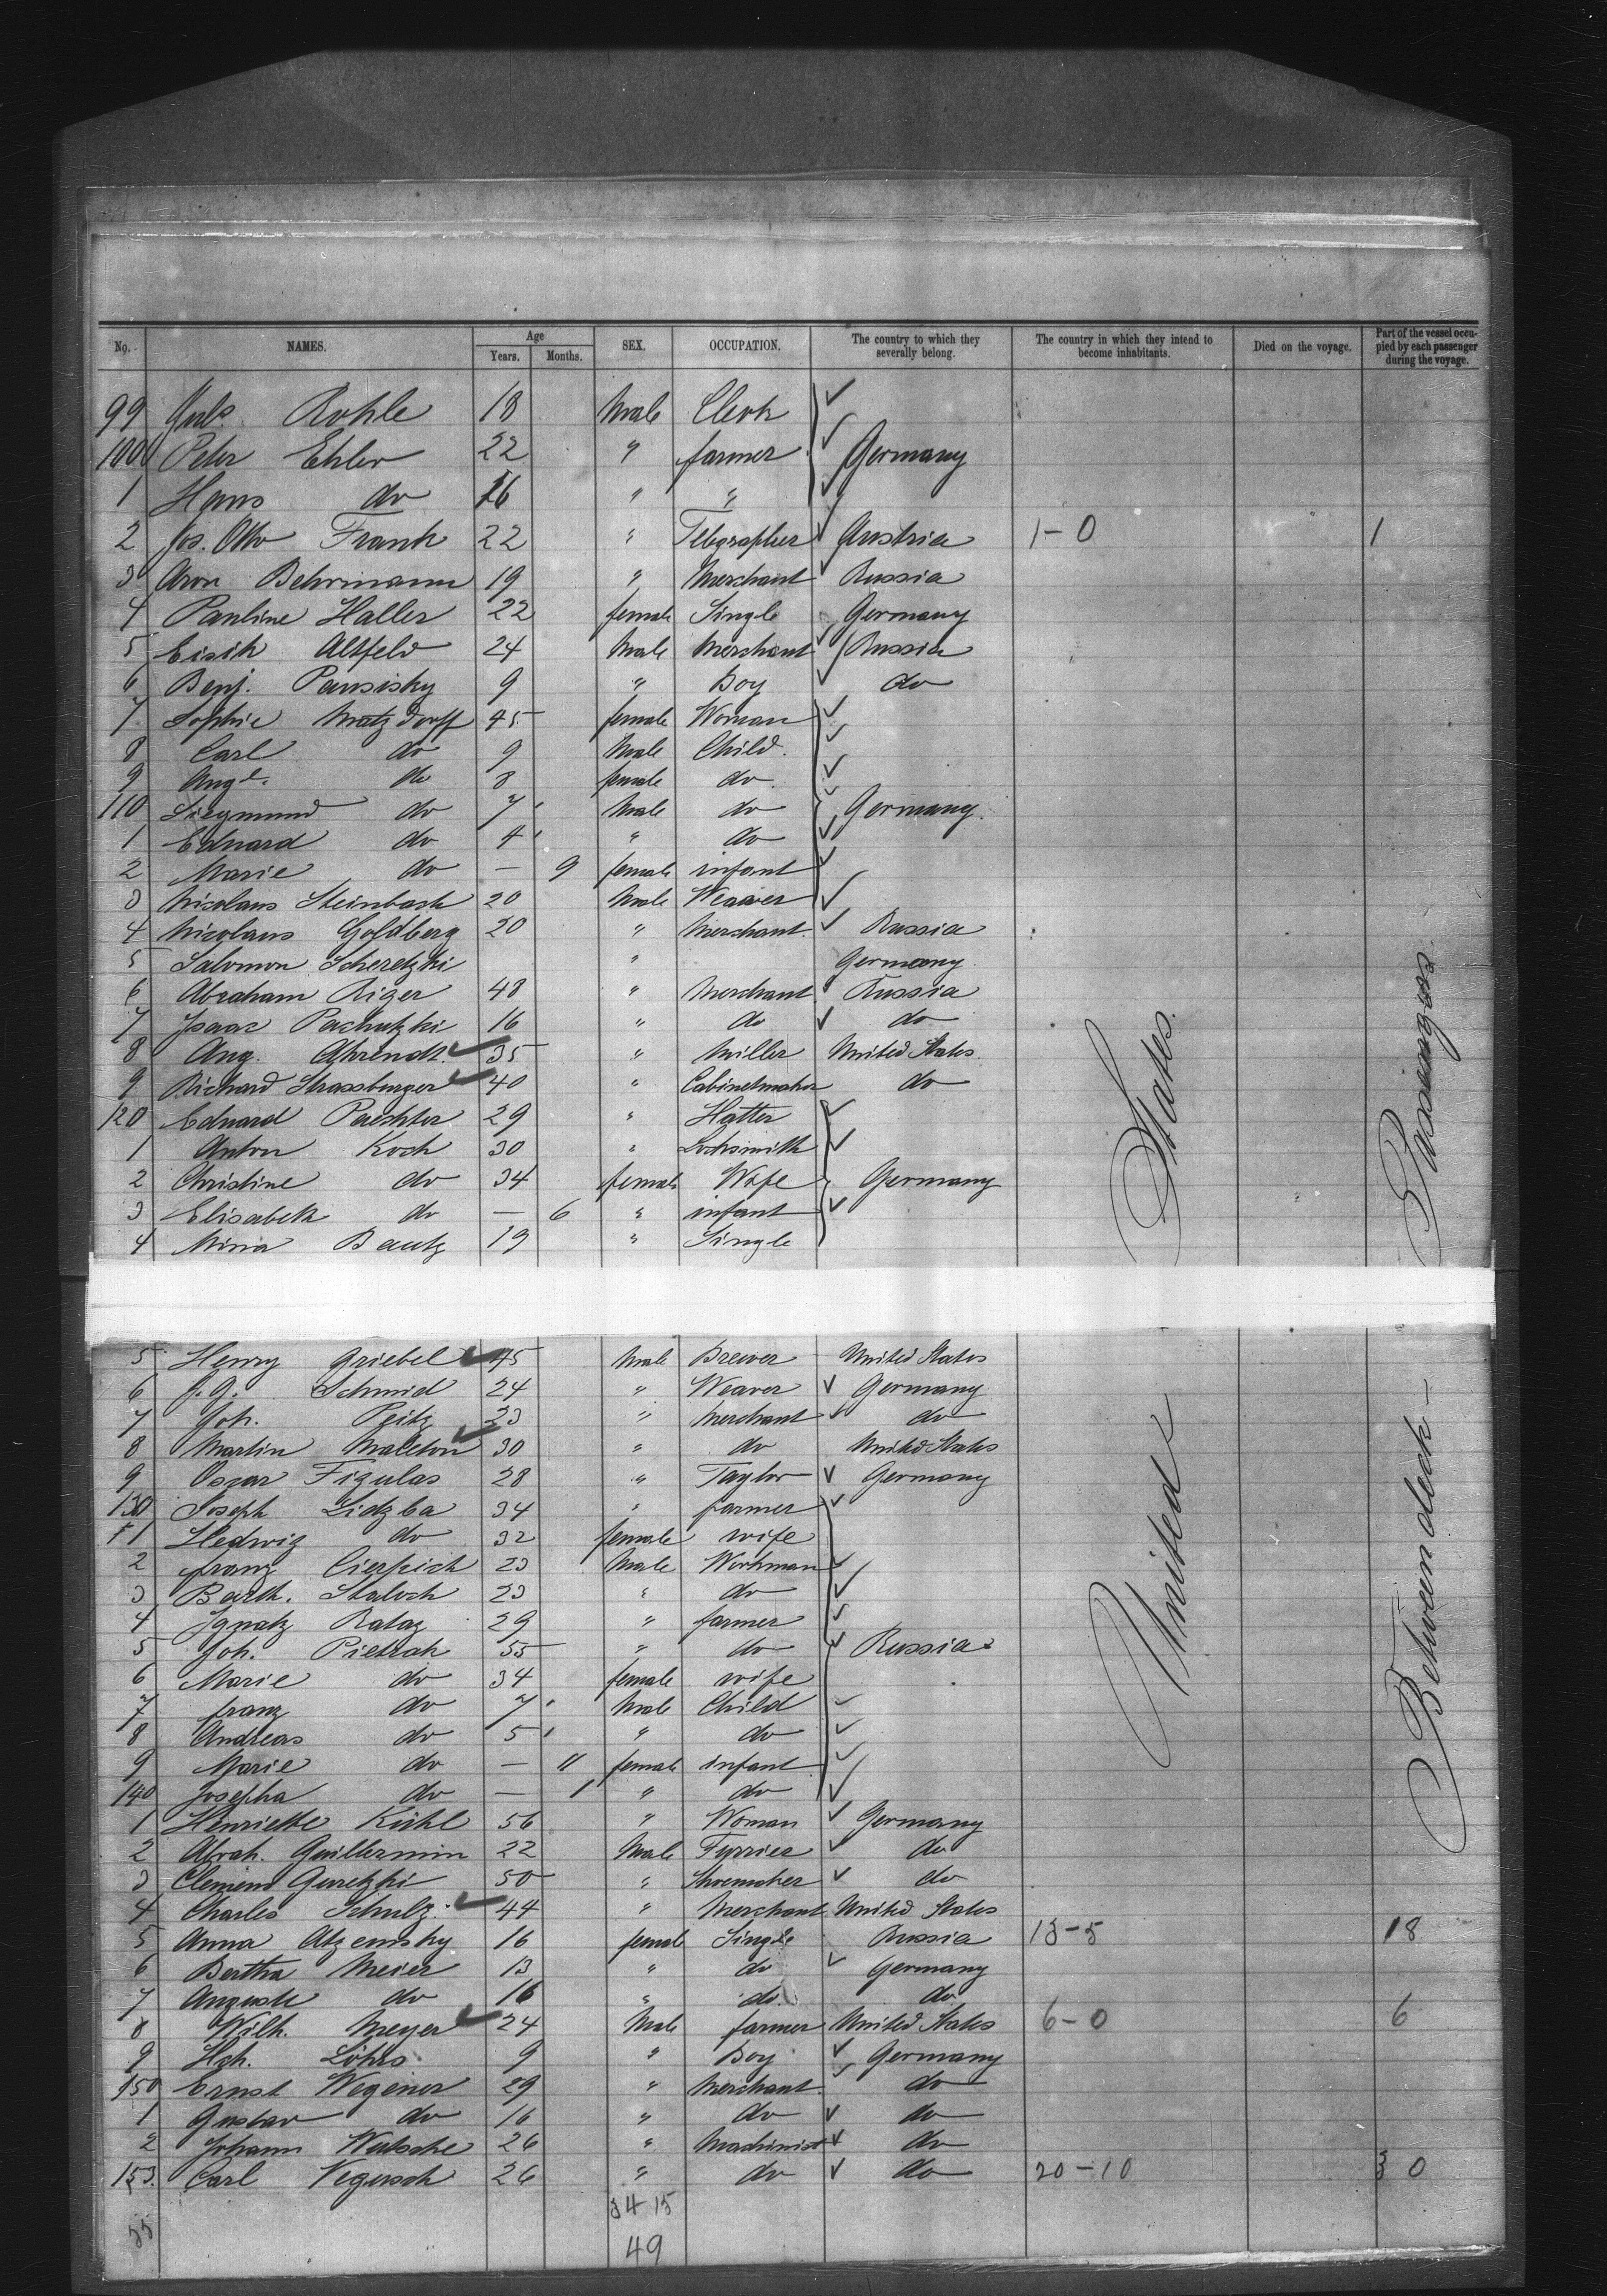 No. NAMES. Age Years. Months. SEX. OCCUPATION. The country to which they severally belong. The country in which they intend to become inhabitants. Died on the voyage. Part of the vessel occupied by each passenger during the voyage.
99 Rohle 18 Male Clerk
100 Peter Ehler 22 " farmer Germany
1 Hans do 26 " "
2 Jos. Otto Frank 22 " Telegrapher Austria 1-0 1
3 Aron Behrmann 19 " Merchant Russia
4 Pauline Haller 22 female Single Germany
5 Eisik Altfeld 24 Male Merchant Russia
6 Benj. Pansisky 9 " Boy do
7 Sophie Matzdorff 45 female Woman
8 Carl do 9 Male Child.
9 Aug. do 8 female do
110 Siegmund do 7 Male do Germany.
1 Eduard do 4 " do
2 Marie do — 9 female infant
3 Nicolaus Steinbach 20 Male Weaver
4 Nicolaus Goldberg 20 " Merchant Russia
5 Salomon Scheretzki " Germany
6 Abraham Riger 48 " Merchant Russia
7 Isaac Pachutzki 16 " do do
8 Aug. Ahrendt 35 " Miller United States
9 Richard Strassburger 40 " Cabinetmaker do
120 Eduard Paechter 29 " Hatter
1 Anton Koch 30 " Locksmith
2 Christine do 34 female Wife Germany
3 Elisabeth do — 6 " infant
4 Mina Bautz 19 " Single
5 Henry Griebel 45 Male Brewer United States
6 J.G. Schmid 24 " Weaver Germany
7 Joh. Peitz 23 " Merchant do
8 Martin Maleton 30 " do United States
9 Oscar Figulas 28 " Taylor Germany
130 Joseph Lidzba 34 " farmer
1 Hedwig do 32 female wife
2 franz Cierpich 23 Male Workman
3 Barth. Staloch 23 " do
4 Ignatz Rataz 29 " farmer
5 Joh. Pietrak 35 " do Russia
6 Marie do 34 female wife
7 franz do 7 Male Child
8 Andreas do 5 " do
9 Marie do — 11 female infant
140 Josepha do — 1 " do
1 Henriette Kühl 56 " Woman Germany
2 Abrah. Guillermin 22 Male Furrier do
3 Clemens Guretzki 50 " Shoemaker do
4 Charles Schulz 44 " Merchant United States
5 Anna Atzemsky 16 female Single Russia 13-5 18
6 Bertha Meier 13 " do Germany
7 Auguste do 16 " do do
8 Wilh. Meyer 24 Male farmer United States 6-0 6
9 Hch. Löhrs 9 " Boy Germany
150 Ernst Wegener 29 " Merchant do
1 Gustav do 16 " do do
2 Johann Wutsche 26 " Machinist do
153. Carl Vegusch 26 " do do 20-10 30
34-15
55
49
United States.
Between deck Passengers